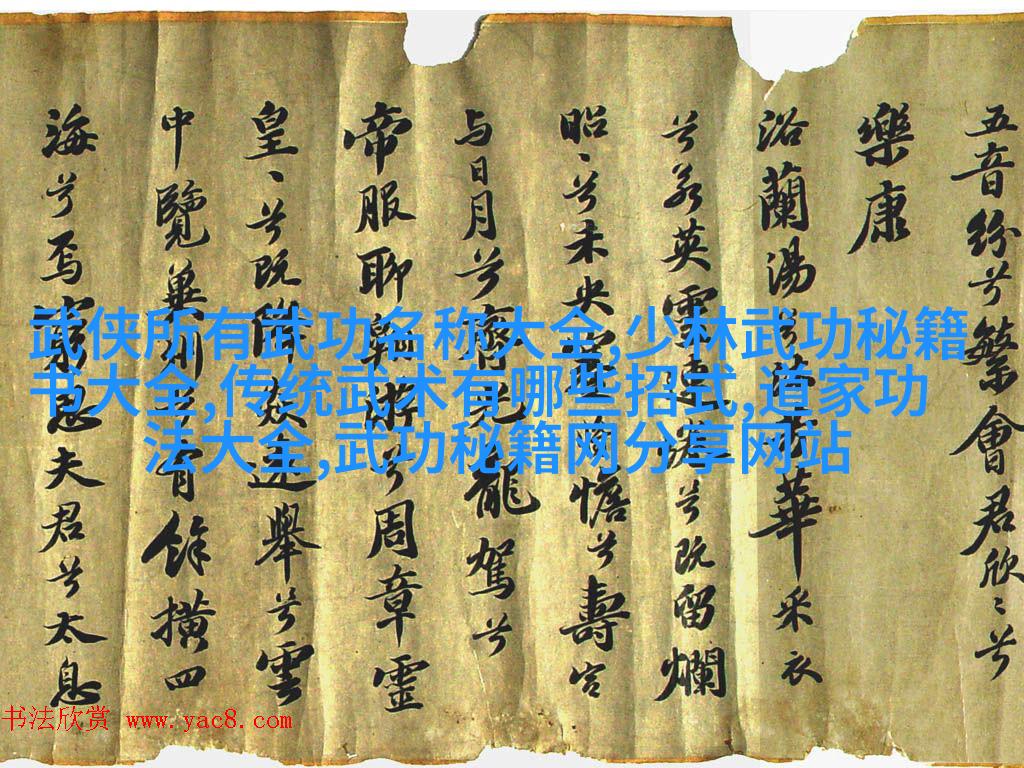 五音紛兮繁會君欣〻兮
樂康
浴蘭湯兮沐芳華采衣
兮若英靈連蜷兮既留爛
昭〻兮未央蹇兮憺兮壽宮
与日月兮齊光龍駕兮
帝服聊翱兮周章靈
皇〻兮既降猋遠舉兮雲
中覽冀州兮有餘橫四
海兮焉窮思夫君兮太息
武侠所有武功名称大全,少林武功秘籍
书大全,传统武术有哪些招式,道家功
法大全,武功秘籍网分享网站
书法欣赏 www.yac8.com